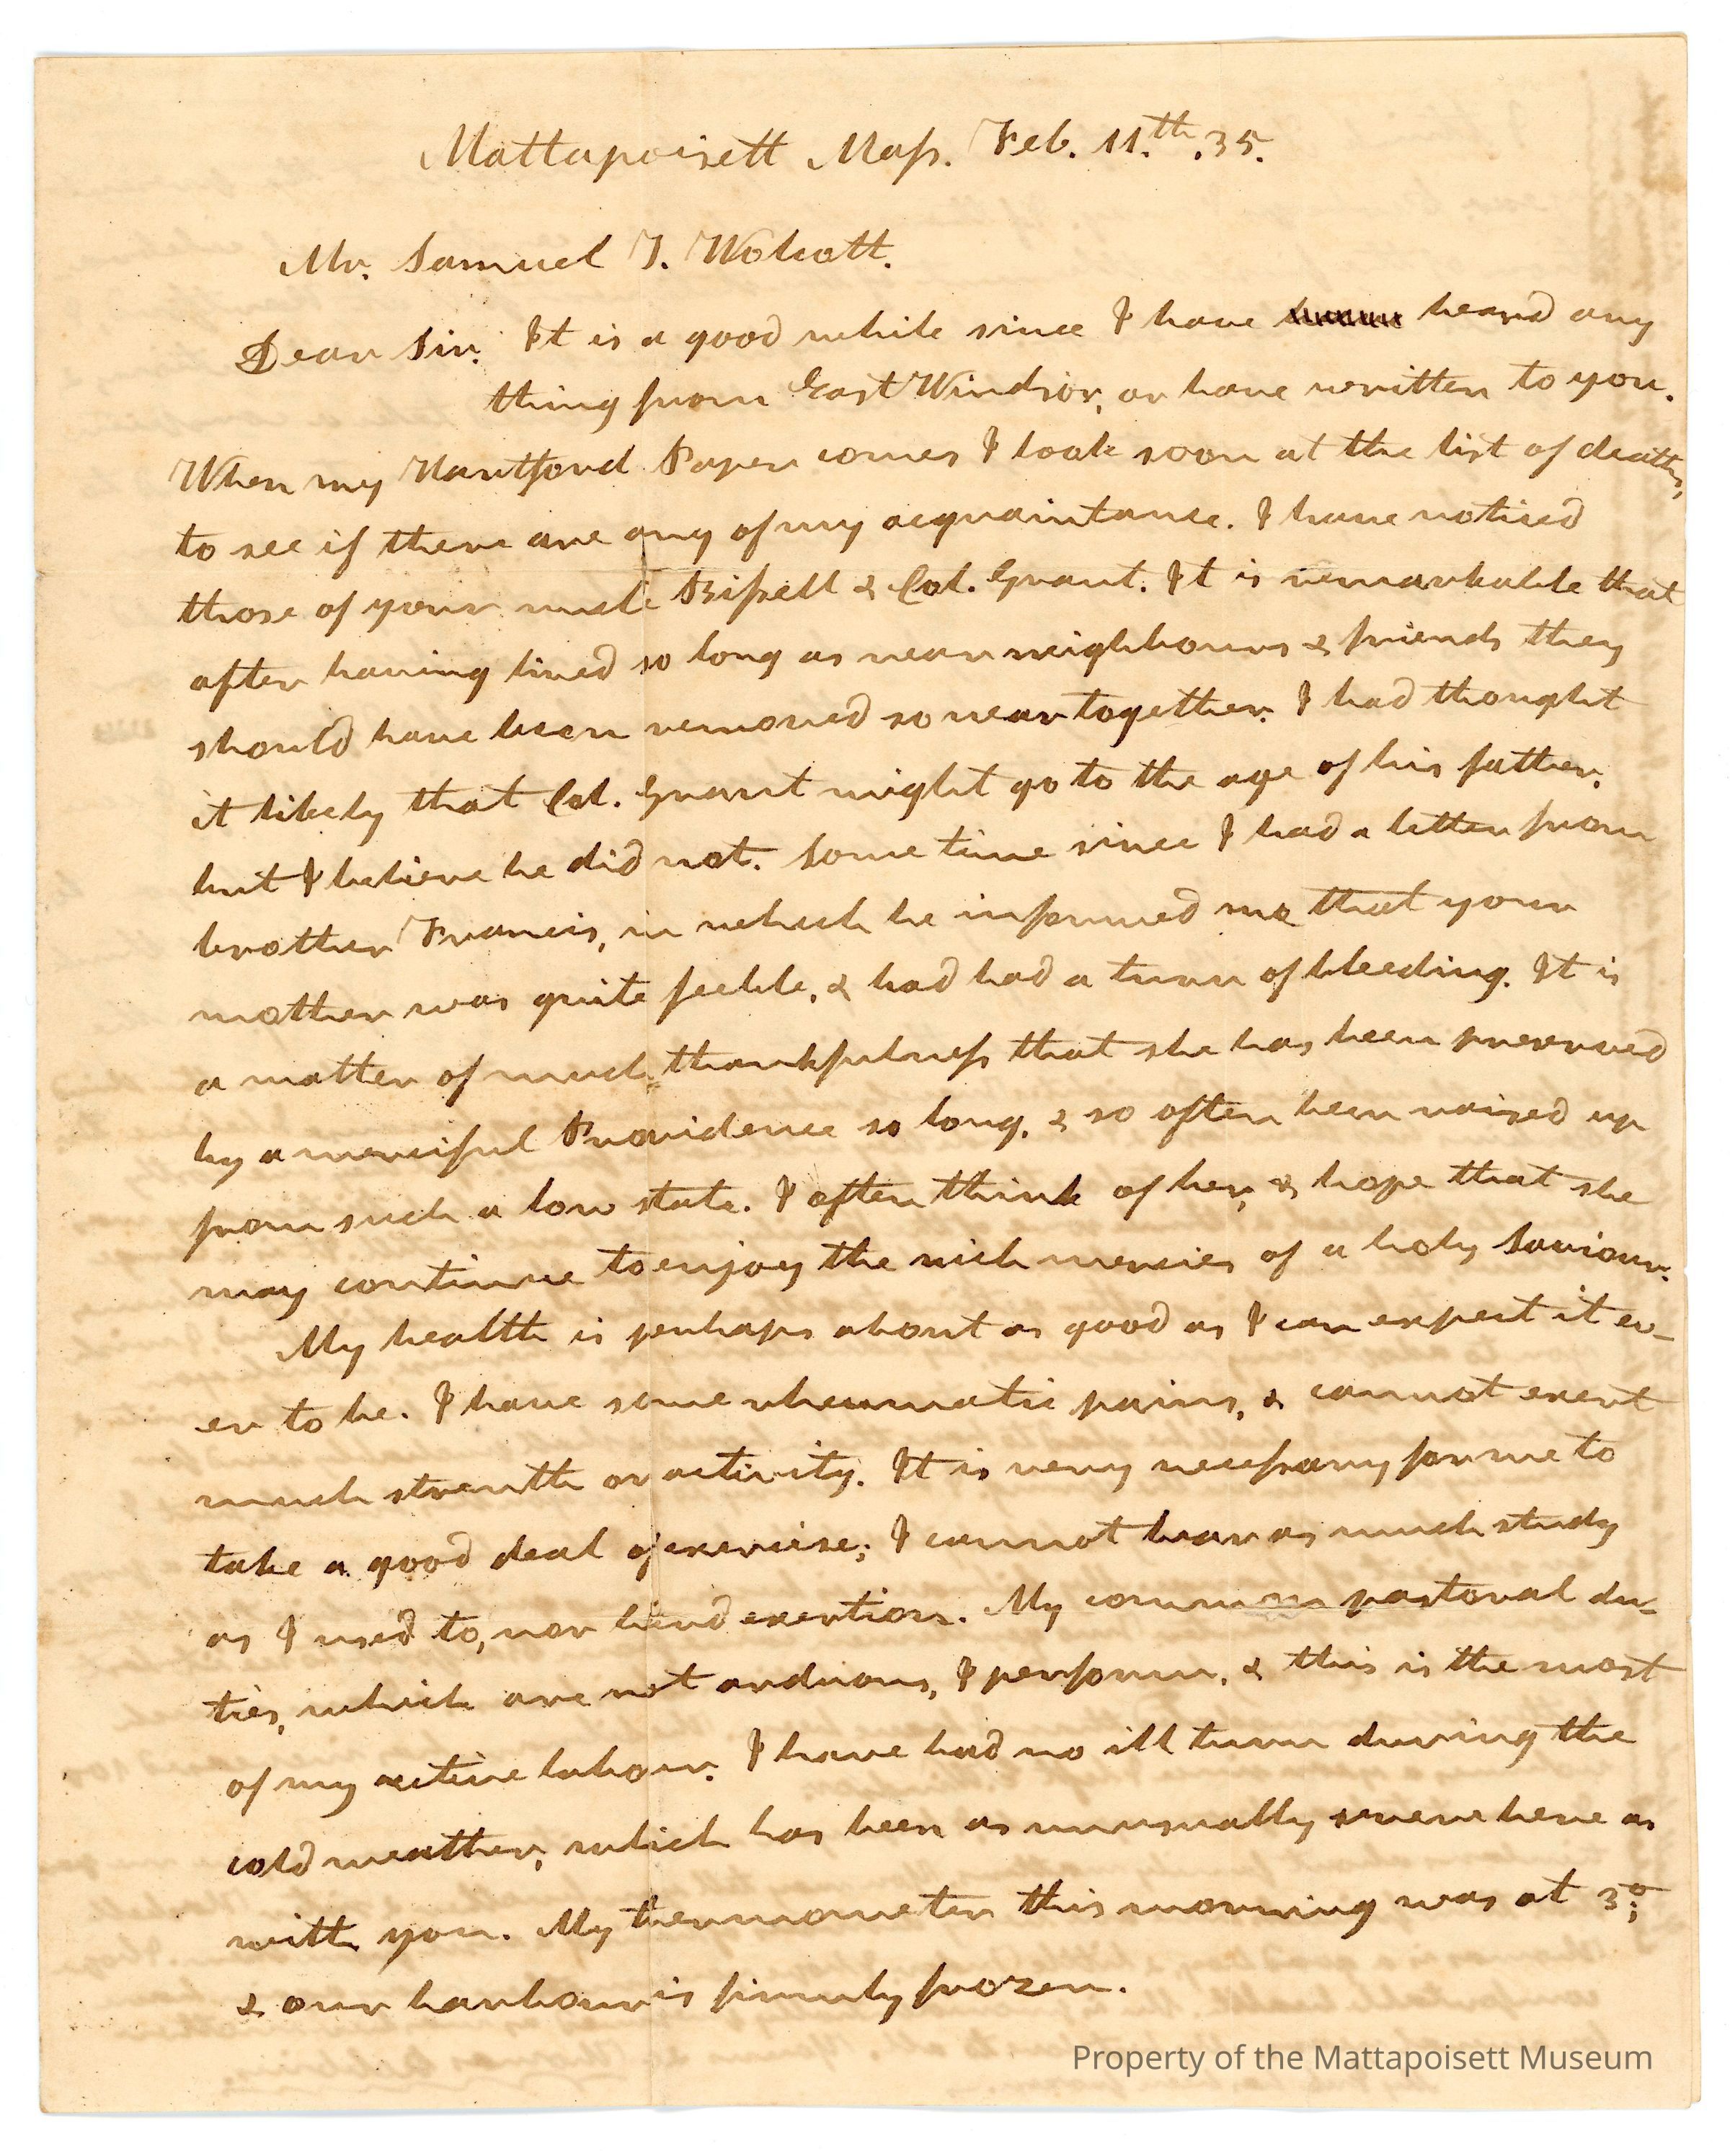 Mattapoisett Mass. Feb. 11.th .35.
Mr. Samuel T. Wolcott.
Dear Sir. It is a good while since I have heard any
thing from East Windsor, or have written to you.
When my Hartford Paper comes I look soon at the list of deaths,
to see if there are any of my acquaintance. I have noticed
those of your uncle Bissell & Col. Grant. It is remarkable that
after having lived so long as near neighbours & friends they
should have been removed so near together. I had thought
it likely that Col. Grant might go to the age of his father,
but I believe he did not. Some time since I had a letter from
brother Francis, in which he informed me that your
mother was quite feeble, & had had a turn of bleeding. It is
a matter of much thankfulness that she has been preserved
by a merciful Providence so long, & so often been raised up
from such a low state. I often think of her, & hope that she
may continue to enjoy the rich mercies of a holy Saviour.
My health is perhaps about as good as I can expect it ev-
er to be. I have some rheumatic pains, & cannot exert
much strenth or activity. It is very necessary for me to
take a good deal of exercise; I cannot bear as much study
as I used to, nor hard exertion. My common pastoral du-
ties, which are not arduous, I perform, & this is the most
of my active labour. I have had no ill turn during the
cold weather, which has been as unusually severe here as
with you. My thermometer this morning was at 3°;
& our harbour is firmly frozen.
Property of the Mattapoisett Museum